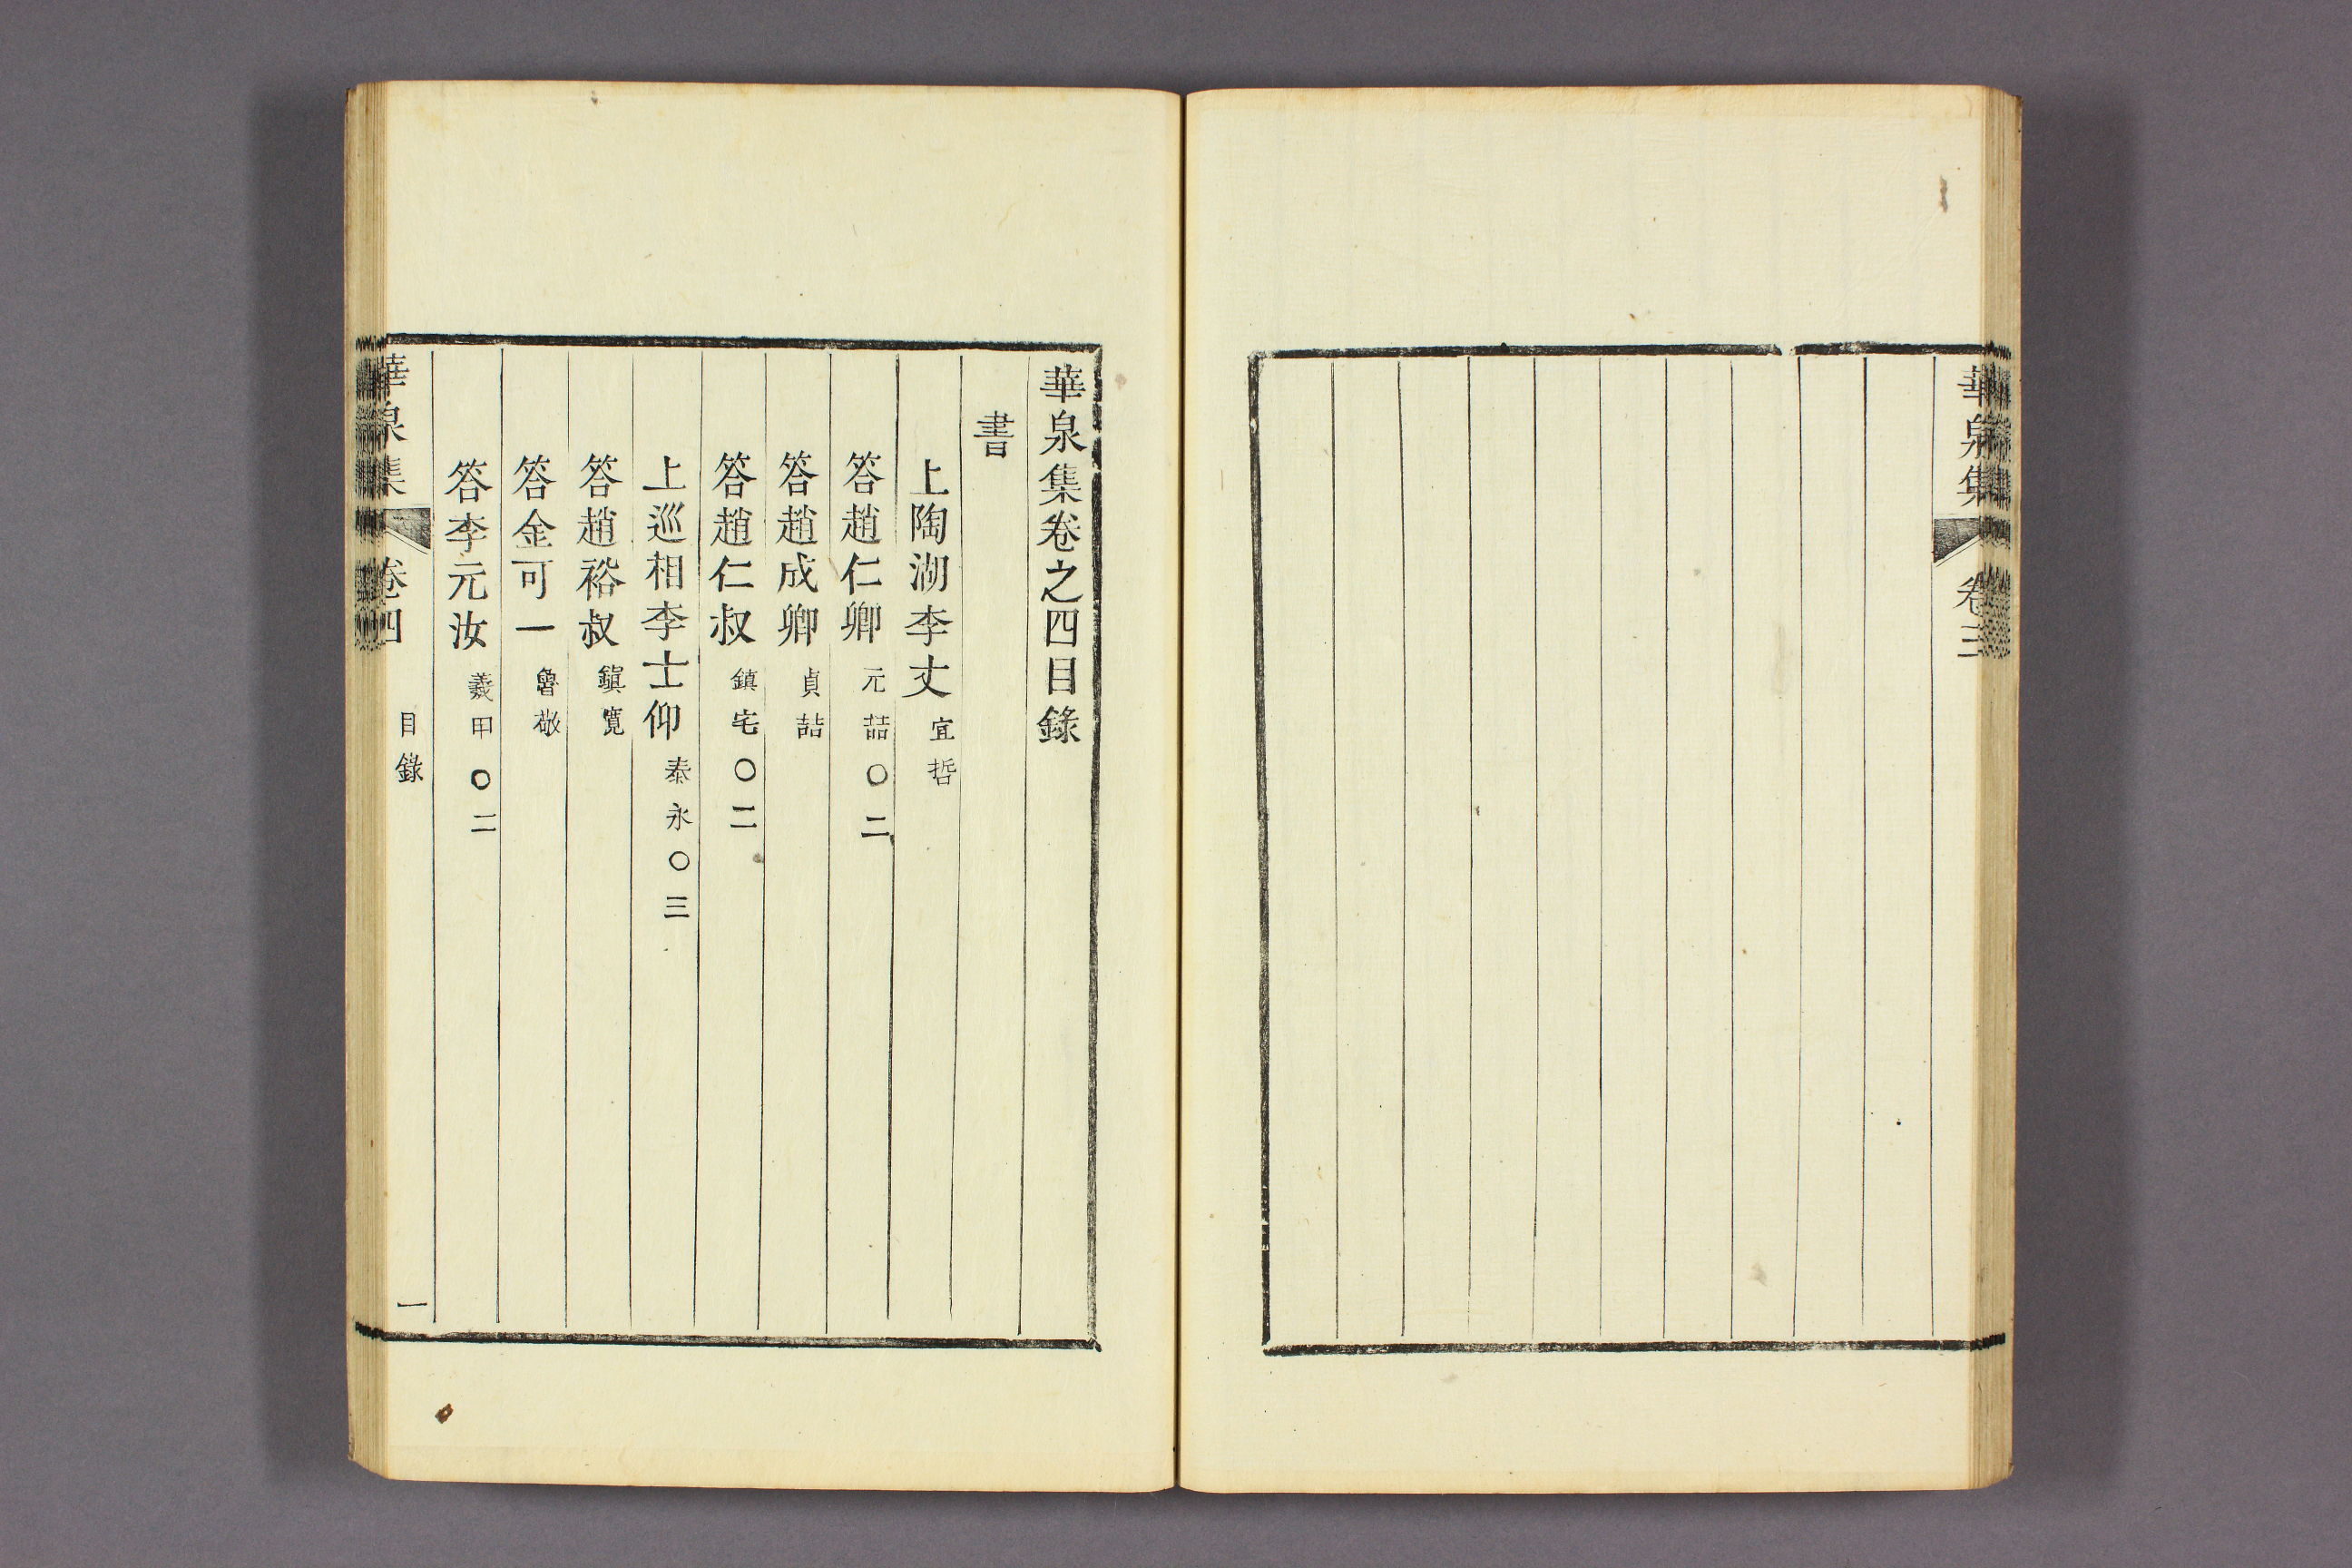 華泉集 卷三
華泉集卷之四目錄
書
上陶湖李丈 宜哲
答趙仁卿 元喆〇二
答趙成卿 貞喆
答趙仁叔 鎮宅〇二
上巡相李士仰 泰永〇三
答趙裕叔 鎮寬
答金可一 魯敬
答李元汝 羲甲〇二
華泉集 卷四 目錄 一